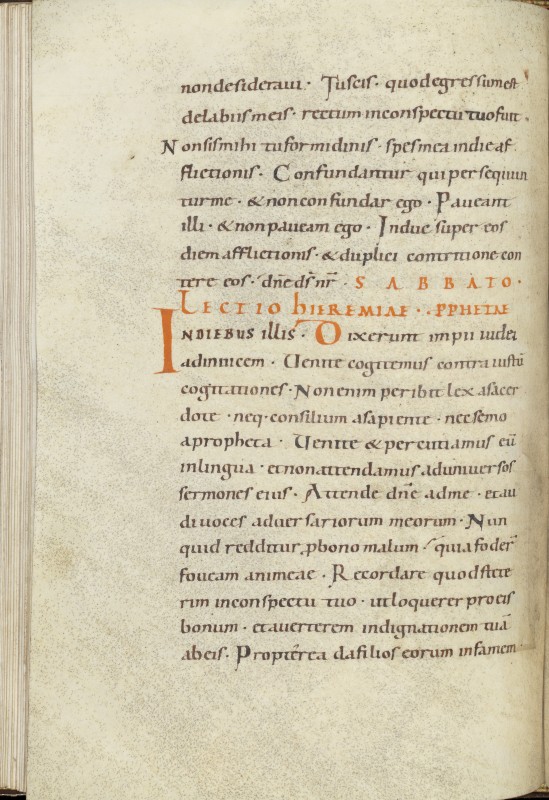 non desideravi · Tu scis · quod egressum est
de labiis meis · rectum in conspectu tuo fuit ·
Non sis mihi tu formidinis · spes mea in die af
flictionis · Confundantur qui persequun
tur me · & non confundar ego · Paveant
illi · & non paveam ego · Indue super eos
diem afflictionis · & duplici contritione con
tere eos · dn̄e ds̄ nr̄ · SABBATO ·
LECTIO hIEREMIAE · PPHETAE
IN DIEBUS illis · Dixerunt impii iudei
ad invicem · Uenite cogitemus contra iustū
cogitationes · Non enim peribit lex a sacer
dote · neq · consilium a sapiente · nec sermo
a propheta · Uenite & percutiamus eū
in lingua · et non attendamus ad universos
sermones eius · Attende dn̄e ad me · et au
di voces adversariorum meorum · Nun
quid redditur ꝓ bono malum · quia foder̄
foveam animeae · Recordare quod stete
rim in conspectu tuo · ut loquerer pro eis
bonum · et averterem indignationem tuā
ab eis · Propterea da filios eorum in famem